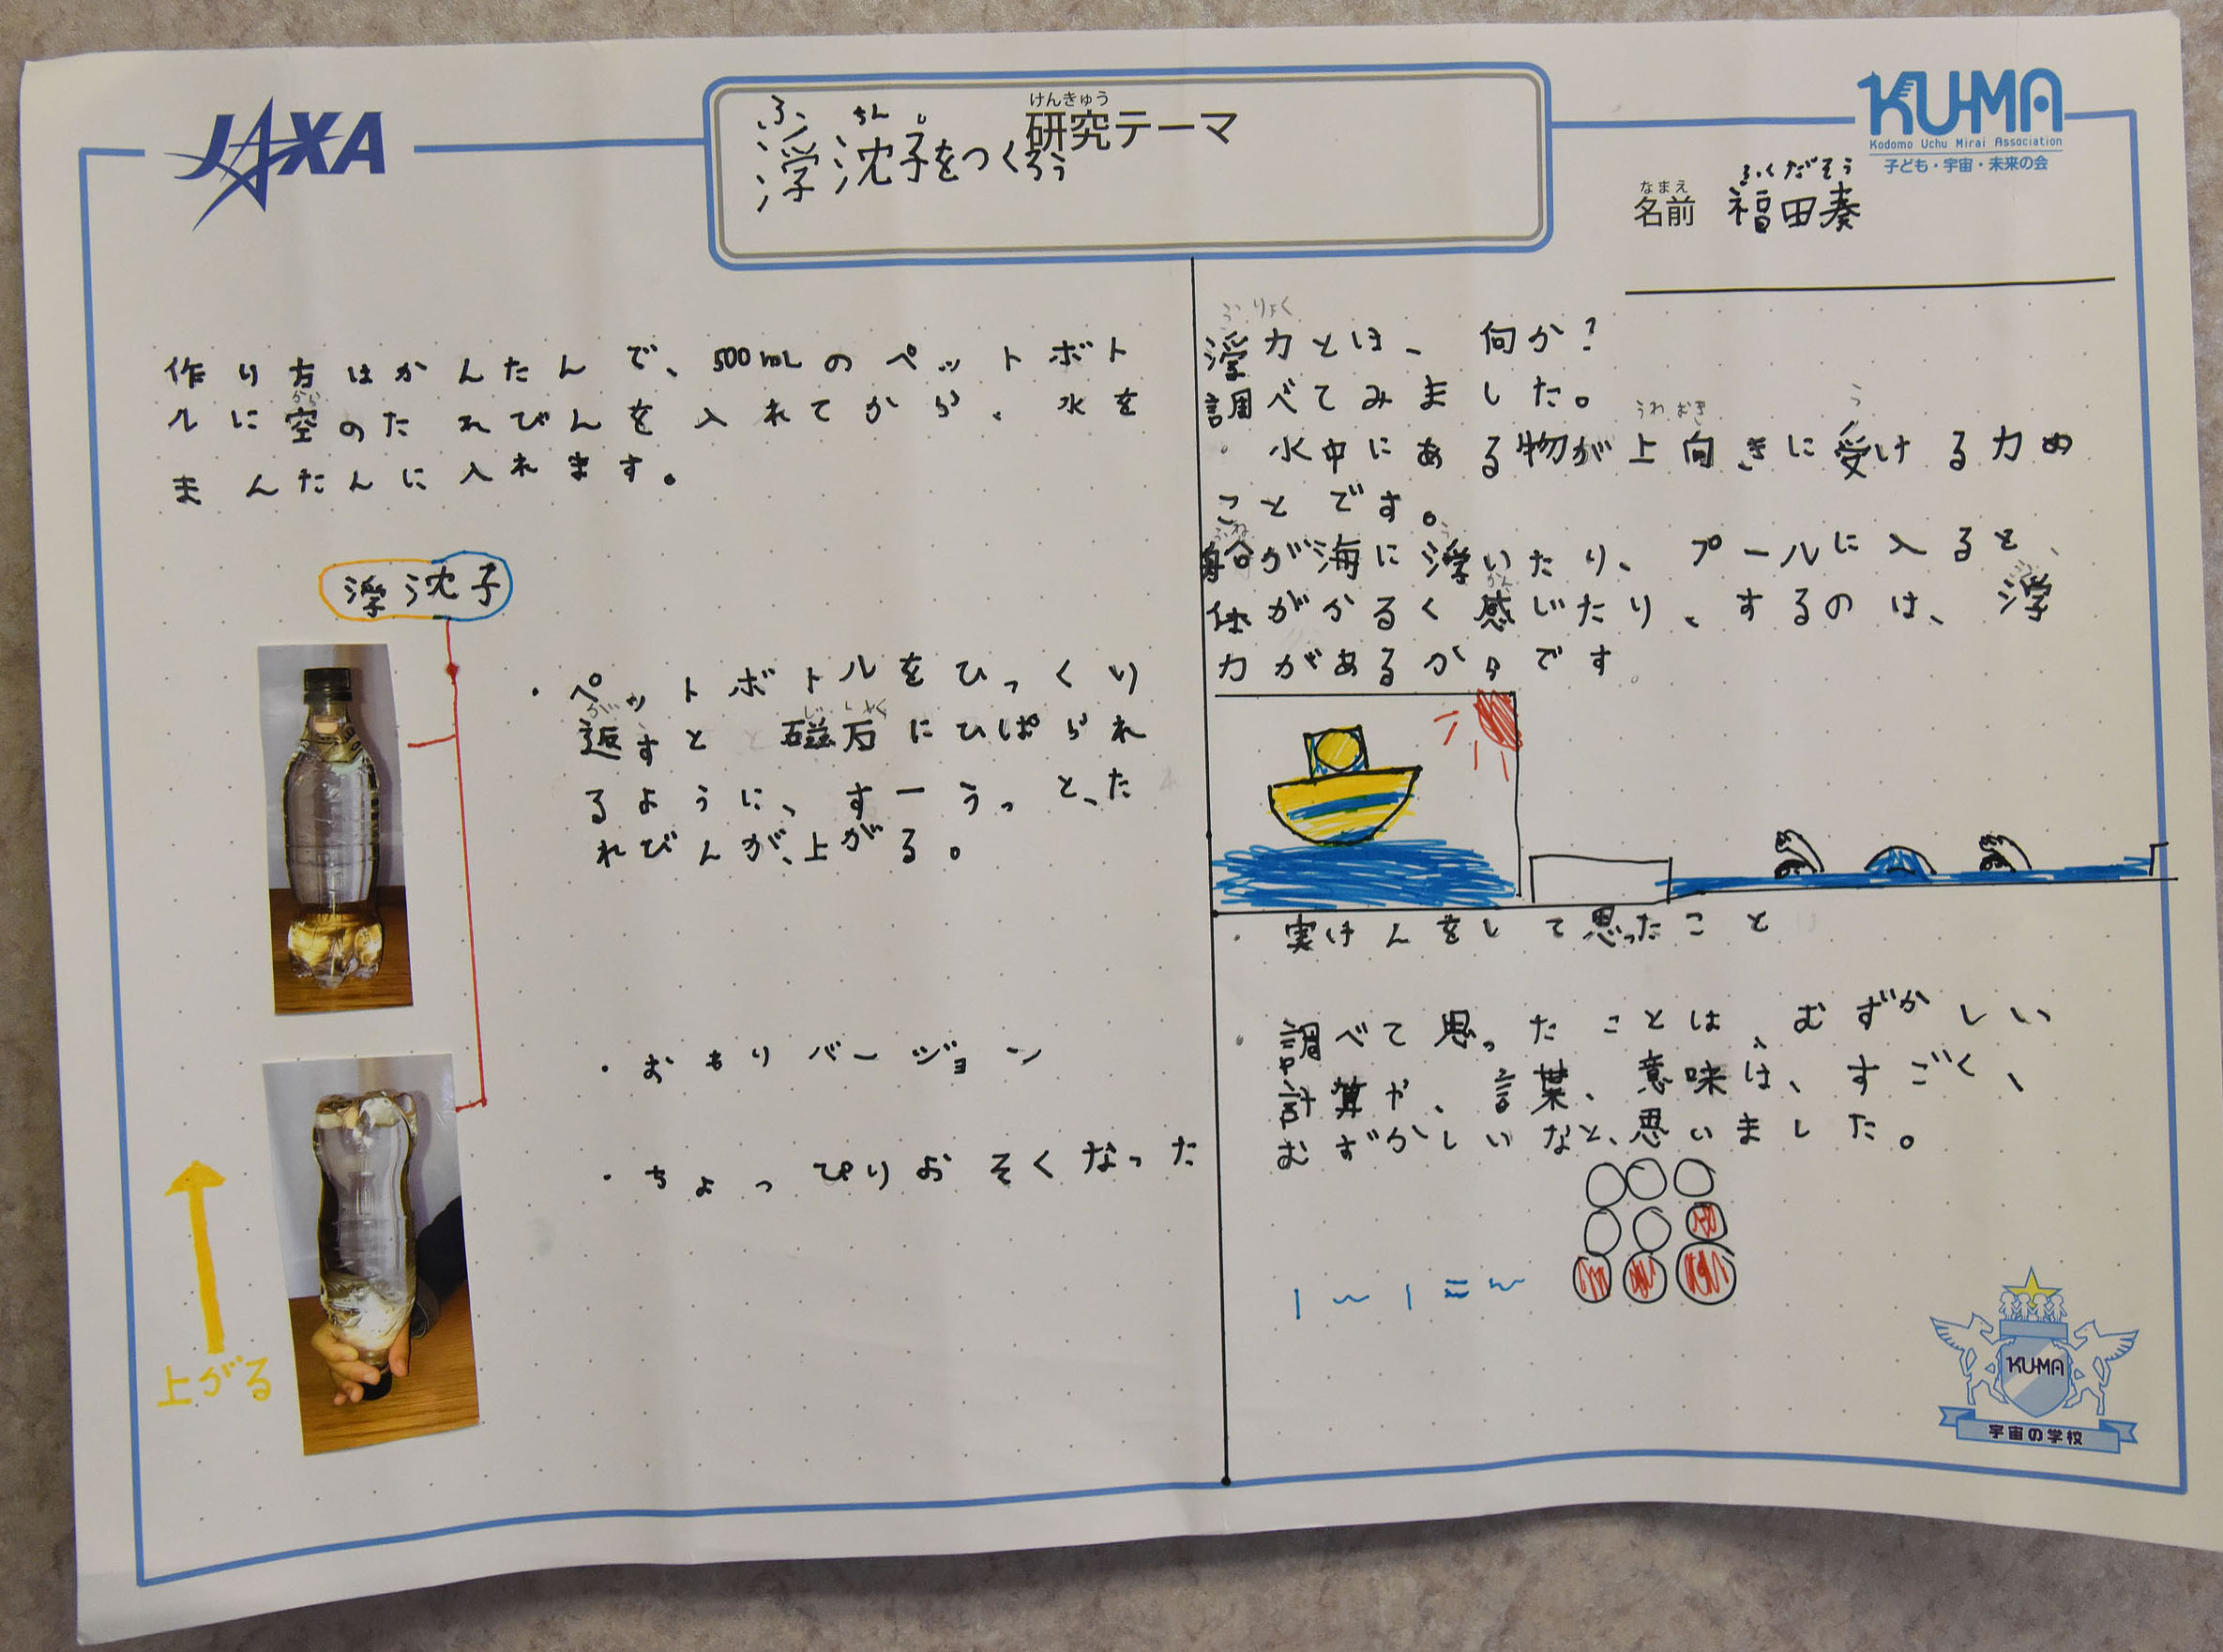 JAXA
けんきゅう
研究テーマ
ふ ちん し
浮沈子をつくろう
KU-MA
Kodomo Uchu Mirai Association
子ども・宇宙・未来の会
なまえ ふくだそう
名前 福田奏
作り方はかんたんで、500mLのペットボト
から
ルに空のたれびんを入れてから、水を
まんたんに入れます。
浮沈子
・ペットボトルをひっくり
がえ じ しゃく
返すと磁石にひぱられ
るように、すーうっと、た
れびんが、上がる。
・おもりバージョン
・ちょっぴりおそくなった
上がる
ふ りょく
浮力とは、何か?
調べてみました。
うわ むき う
・水中にある物が上向きに受ける力の
ことです。
ふね う
船が海に浮いたり、プールに入ると、
かん ふ
体がかるく感じたり、するのは、浮
力があるからです。
・実けんをして思ったこと
・調べて思ったことは、むずかしい
計算や、言葉、意味は、すごく、
むずかしいなと、思いました。
1〜1=〜
KU-MA
宇宙の学校